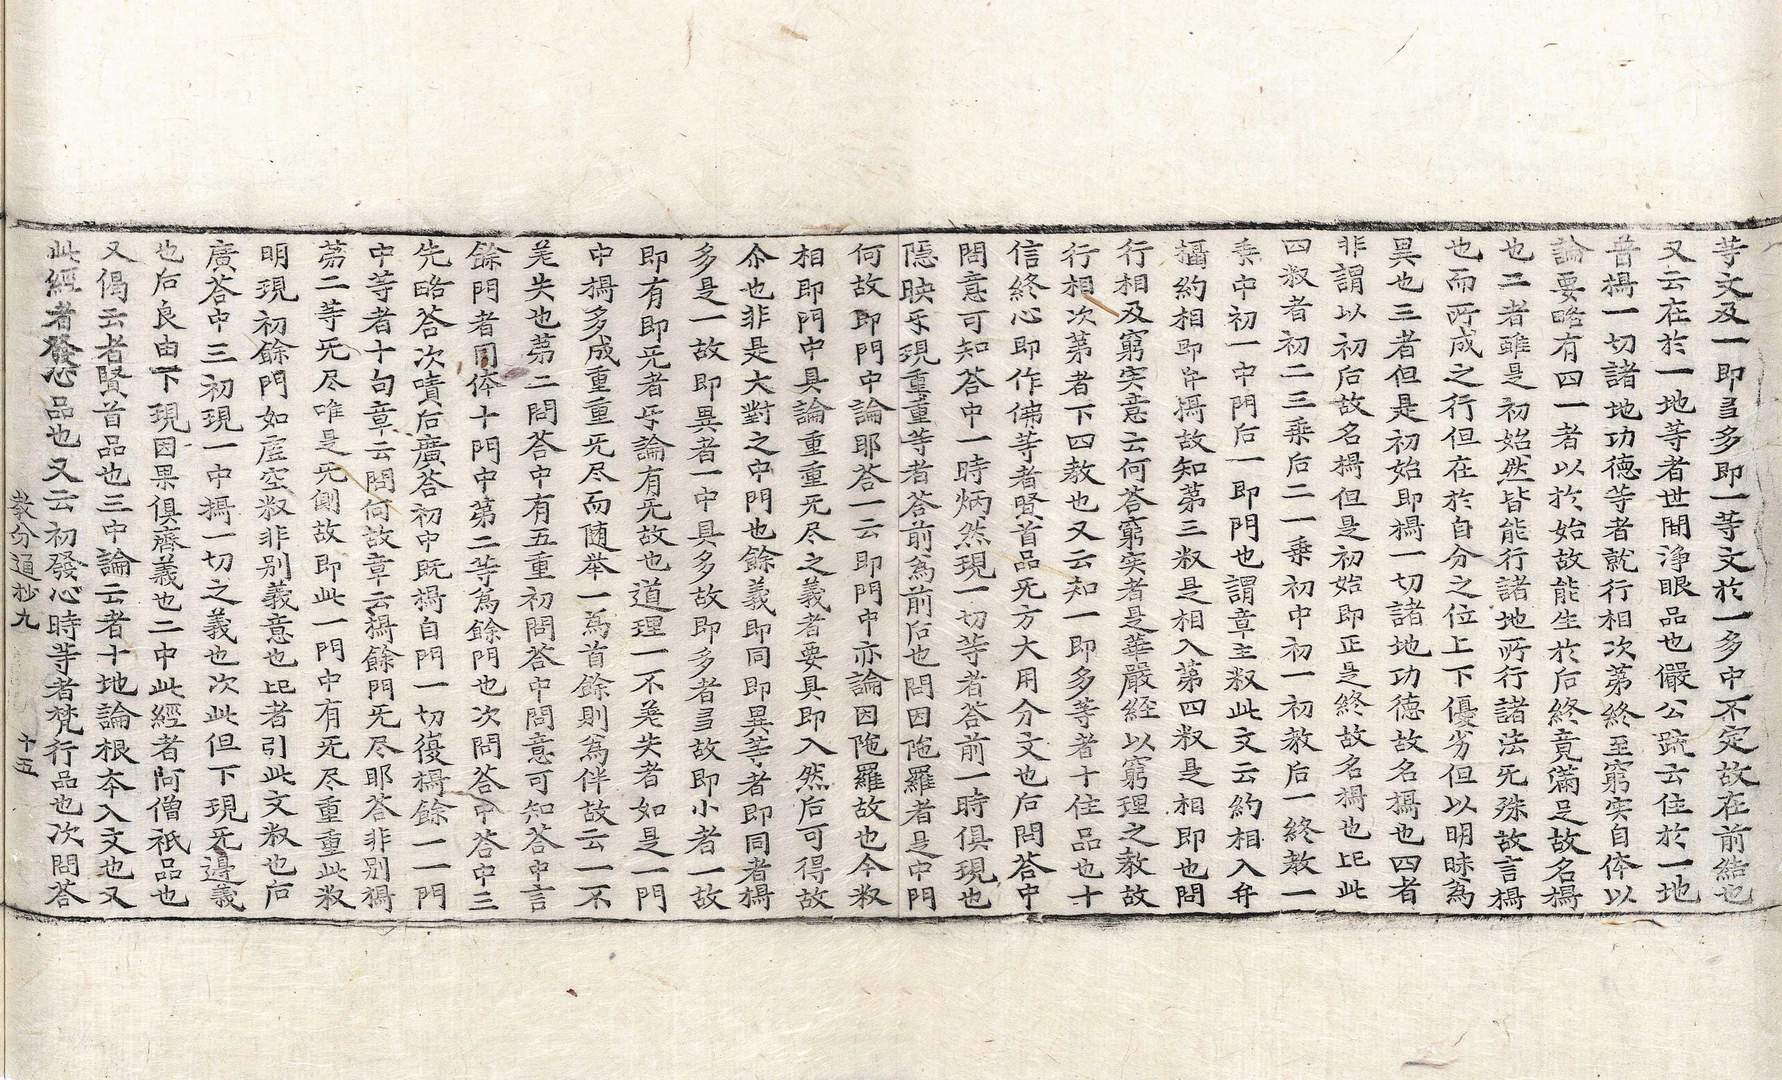 等文及一即且多即一等文於一多中不定故在前結也
又云在於一地等者世間淨眼品也儼公䟽云住於一地
普攝一切諸地功德等者就行相次第終至窮实自体以
論要略有四一者以於始故能生於后終竟滿足故名攝
也二者雖是初始然皆能行諸地所行諸法旡殊故言攝
也而所成之行但在於自分之位上下優劣但以明昧爲
異也三者但是初始即攝一切諸地功德故名攝也四者
非謂以初后故名攝但是初始即正是終故名攝也此
四叙者初二三乗后二一乗初中初一初教后一終教一
乗中初一中門后一即門也謂章主叙此文云約相入弁
攝約相即弁攝故知第三叙是相入第四叙是相即也問
行相及窮实意云何答窮实者是華嚴経以窮理之教故
行相次第者下四教也又云知一即多等者十住品也十
信終心即作佛等者賢首品旡方大用分文也后問答中
問意可知答中一時炳然現一切等者答前一時俱現也
隱映㸦現重重等者答前為前后也問因陁羅者是中門
何故即門中論耶答一云即門中亦論因陁羅故也今叙
相即門中具論重重旡尽之義者要具即入然后可得故
尒也非是大對之中門也餘義即同即異等者即同者攝
多是一故即異者一中具多故即多者且故即小者一故
即有即旡者㸦論有旡故也道理一不差失者如是一門
中攝多成重重旡尽而随举一為首餘則為伴故云一不
差失也苐二問答中有五重初問答中問意可知答中言
餘門者同体十門中苐二等為餘門也次問答中答中三
先略答次嘖后廣答初中旣攝自門一切復攝餘一一門
中等者十句章云問何故章云攝餘門旡尽耶答非别攝
苐二等旡尽唯是旡側故即此一門中有旡尽重重此叙
明現初餘門如虛空叙非别義意也此者引此文叙也后
廣答中三初現一中攝一切之義也次此但下現旡邊義
也后良由下現因果俱齊義也二中此經者阿僧祇品也
又偈云者賢首品也三中論云者十地論根本入文也又
此經者發心品也又云初發心時等者梵行品也次問答
教分通抄九　十五